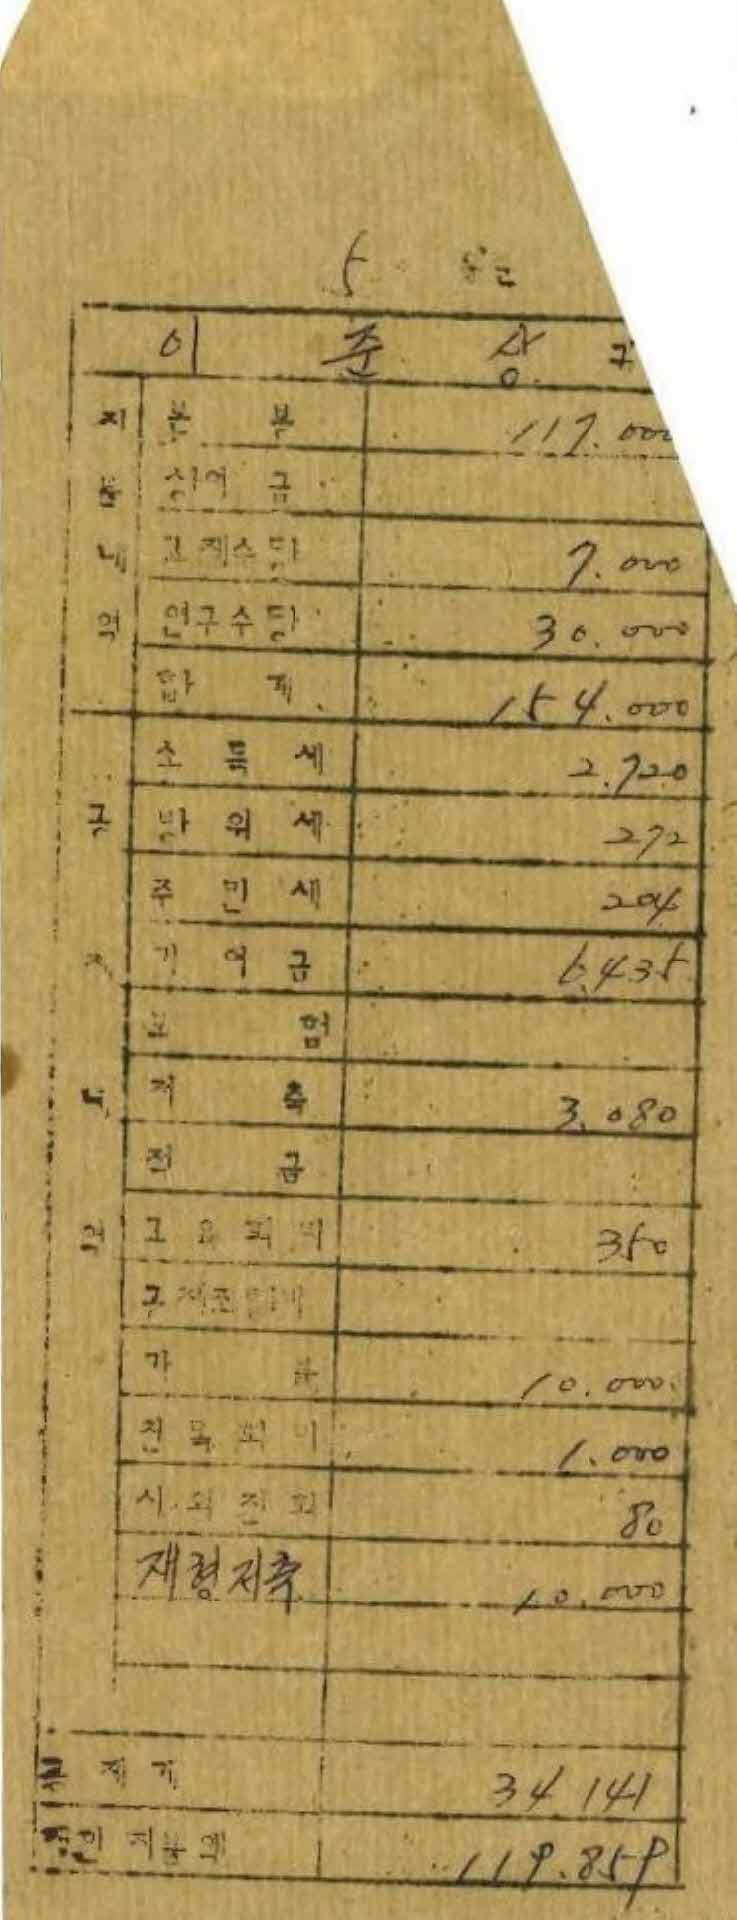 5 월분
이 준 상 귀
지 본 봉 117.000
불 상여 금
내 교재수당 7.000
역 연구수당 30.000
합 계 154.000
소 득 세 2.720
공 방 위 세 272
주 민 세 204
제 기 여 금 6.435
보 험
내 저 축 3.080
적 금
역 교 육 회 비 350
구 제 조 합 비
가 불 10.000
친 목 회 비 1.000
시 외 전 화 80
재형저축 10.000
공 제 계 34 141
차인 지불액 119.859